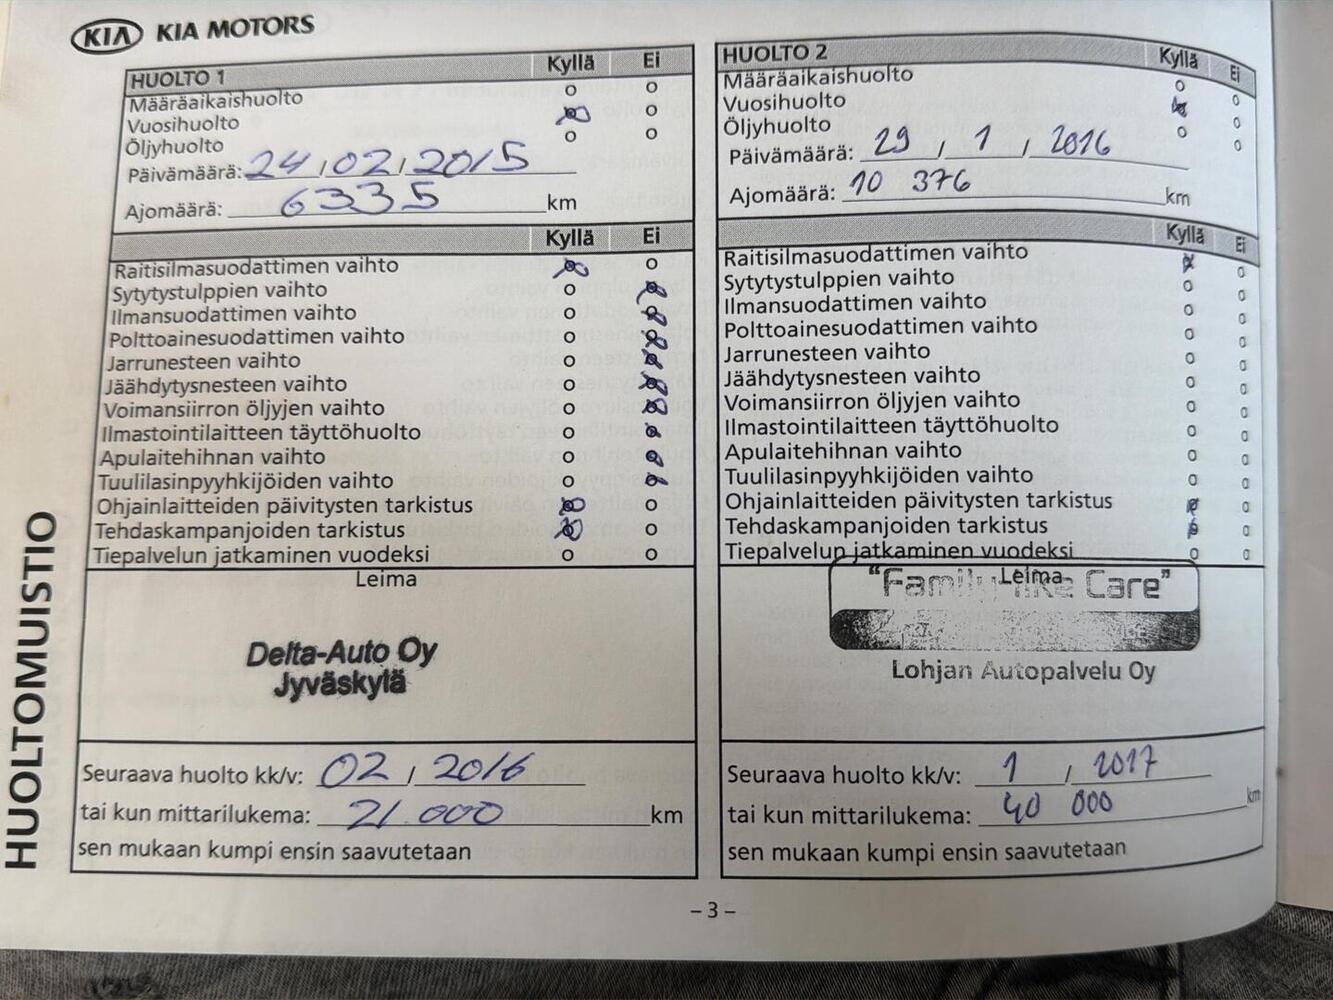 KIA KIA MOTORS
HUOLTO 1 Kyllä Ei
Määräaikaishuolto
Vuosihuolto
Öljyhuolto
Päivämäärä: 24 / 02 / 2015
Ajomäärä: 6335 km
Kyllä Ei
Raitisilmasuodattimen vaihto
Sytytystulppien vaihto
Ilmansuodattimen vaihto
Polttoainesuodattimen vaihto
Jarrunesteen vaihto
Jäähdytysnesteen vaihto
Voimansiirron öljyjen vaihto
Ilmastointilaitteen täyttöhuolto
Apulaitehihnan vaihto
Tuulilasinpyyhkijöiden vaihto
Ohjainlaitteiden päivitysten tarkistus
Tehdaskampanjoiden tarkistus
Tiepalvelun jatkaminen vuodeksi
Leima
Delta-Auto Oy
Jyväskylä
Seuraava huolto kk/v: 02 / 2016
tai kun mittarilukema: 21.000 km
sen mukaan kumpi ensin saavutetaan
HUOLTO 2 Kyllä Ei
Määräaikaishuolto
Vuosihuolto
Öljyhuolto
Päivämäärä: 29 / 1 / 2016
Ajomäärä: 10 376 km
Kyllä Ei
Raitisilmasuodattimen vaihto
Sytytystulppien vaihto
Ilmansuodattimen vaihto
Polttoainesuodattimen vaihto
Jarrunesteen vaihto
Jäähdytysnesteen vaihto
Voimansiirron öljyjen vaihto
Ilmastointilaitteen täyttöhuolto
Apulaitehihnan vaihto
Tuulilasinpyyhkijöiden vaihto
Ohjainlaitteiden päivitysten tarkistus
Tehdaskampanjoiden tarkistus
Tiepalvelun jatkaminen vuodeksi
Leima
"Family-like Care"
Lohjan Autopalvelu Oy
Seuraava huolto kk/v: 1 / 2017
tai kun mittarilukema: 40 000 km
sen mukaan kumpi ensin saavutetaan
HUOLTOMUISTIO
– 3 –